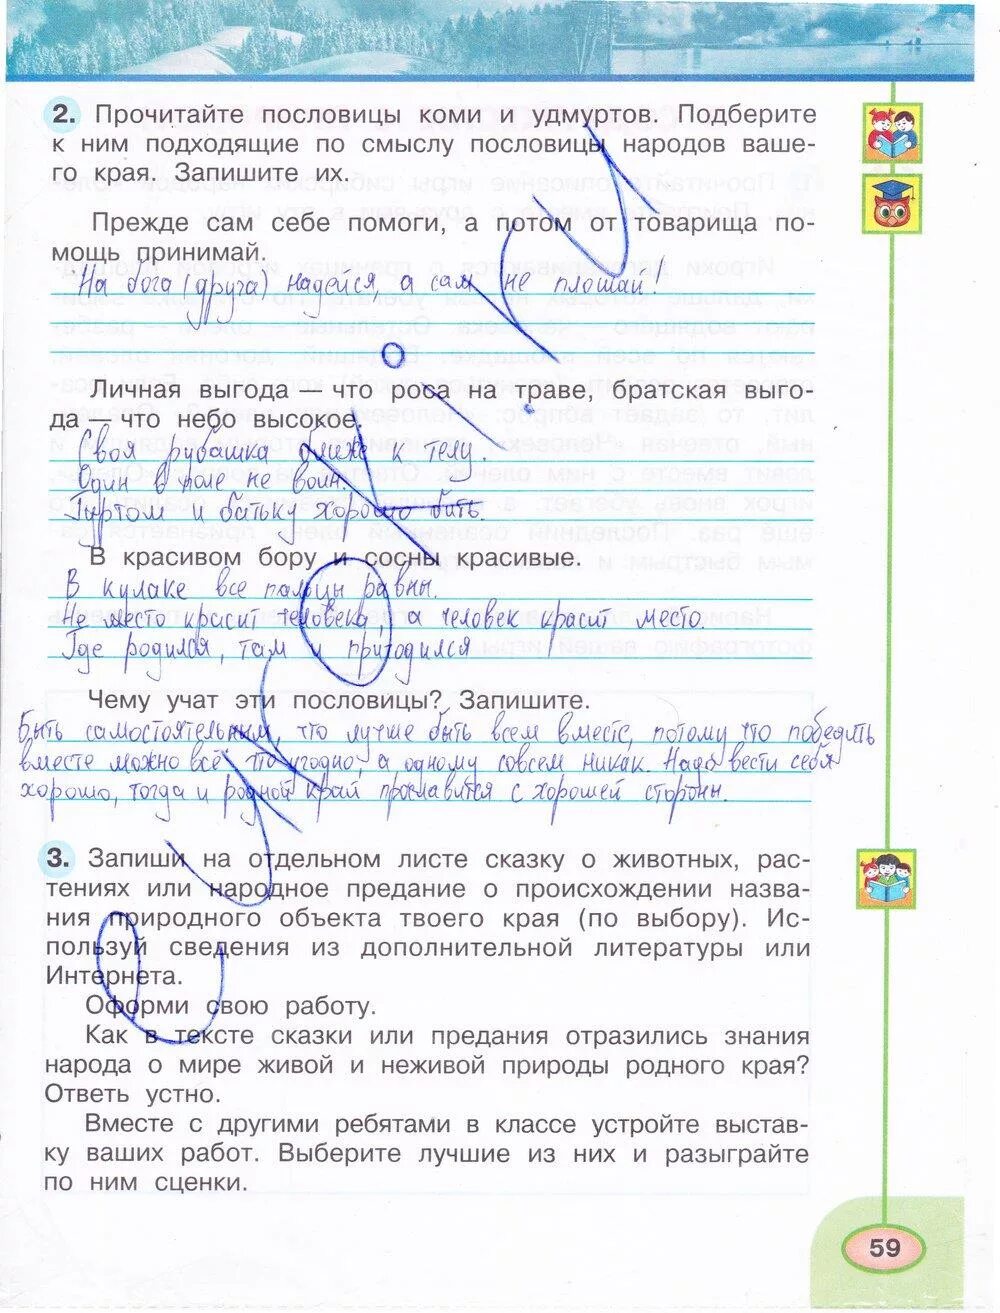 2. Прочитайте пословицы коми и удмуртов. Подберите
к ним подходящие по смыслу пословицы народов ваше-
го края. Запишите их.
Прежде сам себе помоги, а потом от товарища по-
мощь принимай.
На бога (друга) надейся, а сам не плошай!
Личная выгода — что роса на траве, братская выго-
да — что небо высокое.
Своя рубашка ближе к телу.
Один в поле не воин.
Гуртом и батьку хорошо бить.
В красивом бору и сосны красивые.
В кулаке все пальцы равны.
Не место красит человека, а человек красит место.
Где родился, там и пригодился
Чему учат эти пословицы? Запишите.
Быть самостоятельным, что лучше быть всем вместе, потому что победить
вместе можно всё что угодно, а одному совсем никак. Надо вести себя
хорошо, тогда и родной край прославится с хорошей стороны.
3. Запиши на отдельном листе сказку о животных, рас-
тениях или народное предание о происхождении назва-
ния природного объекта твоего края (по выбору). Ис-
пользуй сведения из дополнительной литературы или
Интернета.
Оформи свою работу.
Как в тексте сказки или предания отразились знания
народа о мире живой и неживой природы родного края?
Ответь устно.
Вместе с другими ребятами в классе устройте выстав-
ку ваших работ. Выберите лучшие из них и разыграйте
по ним сценки.
59